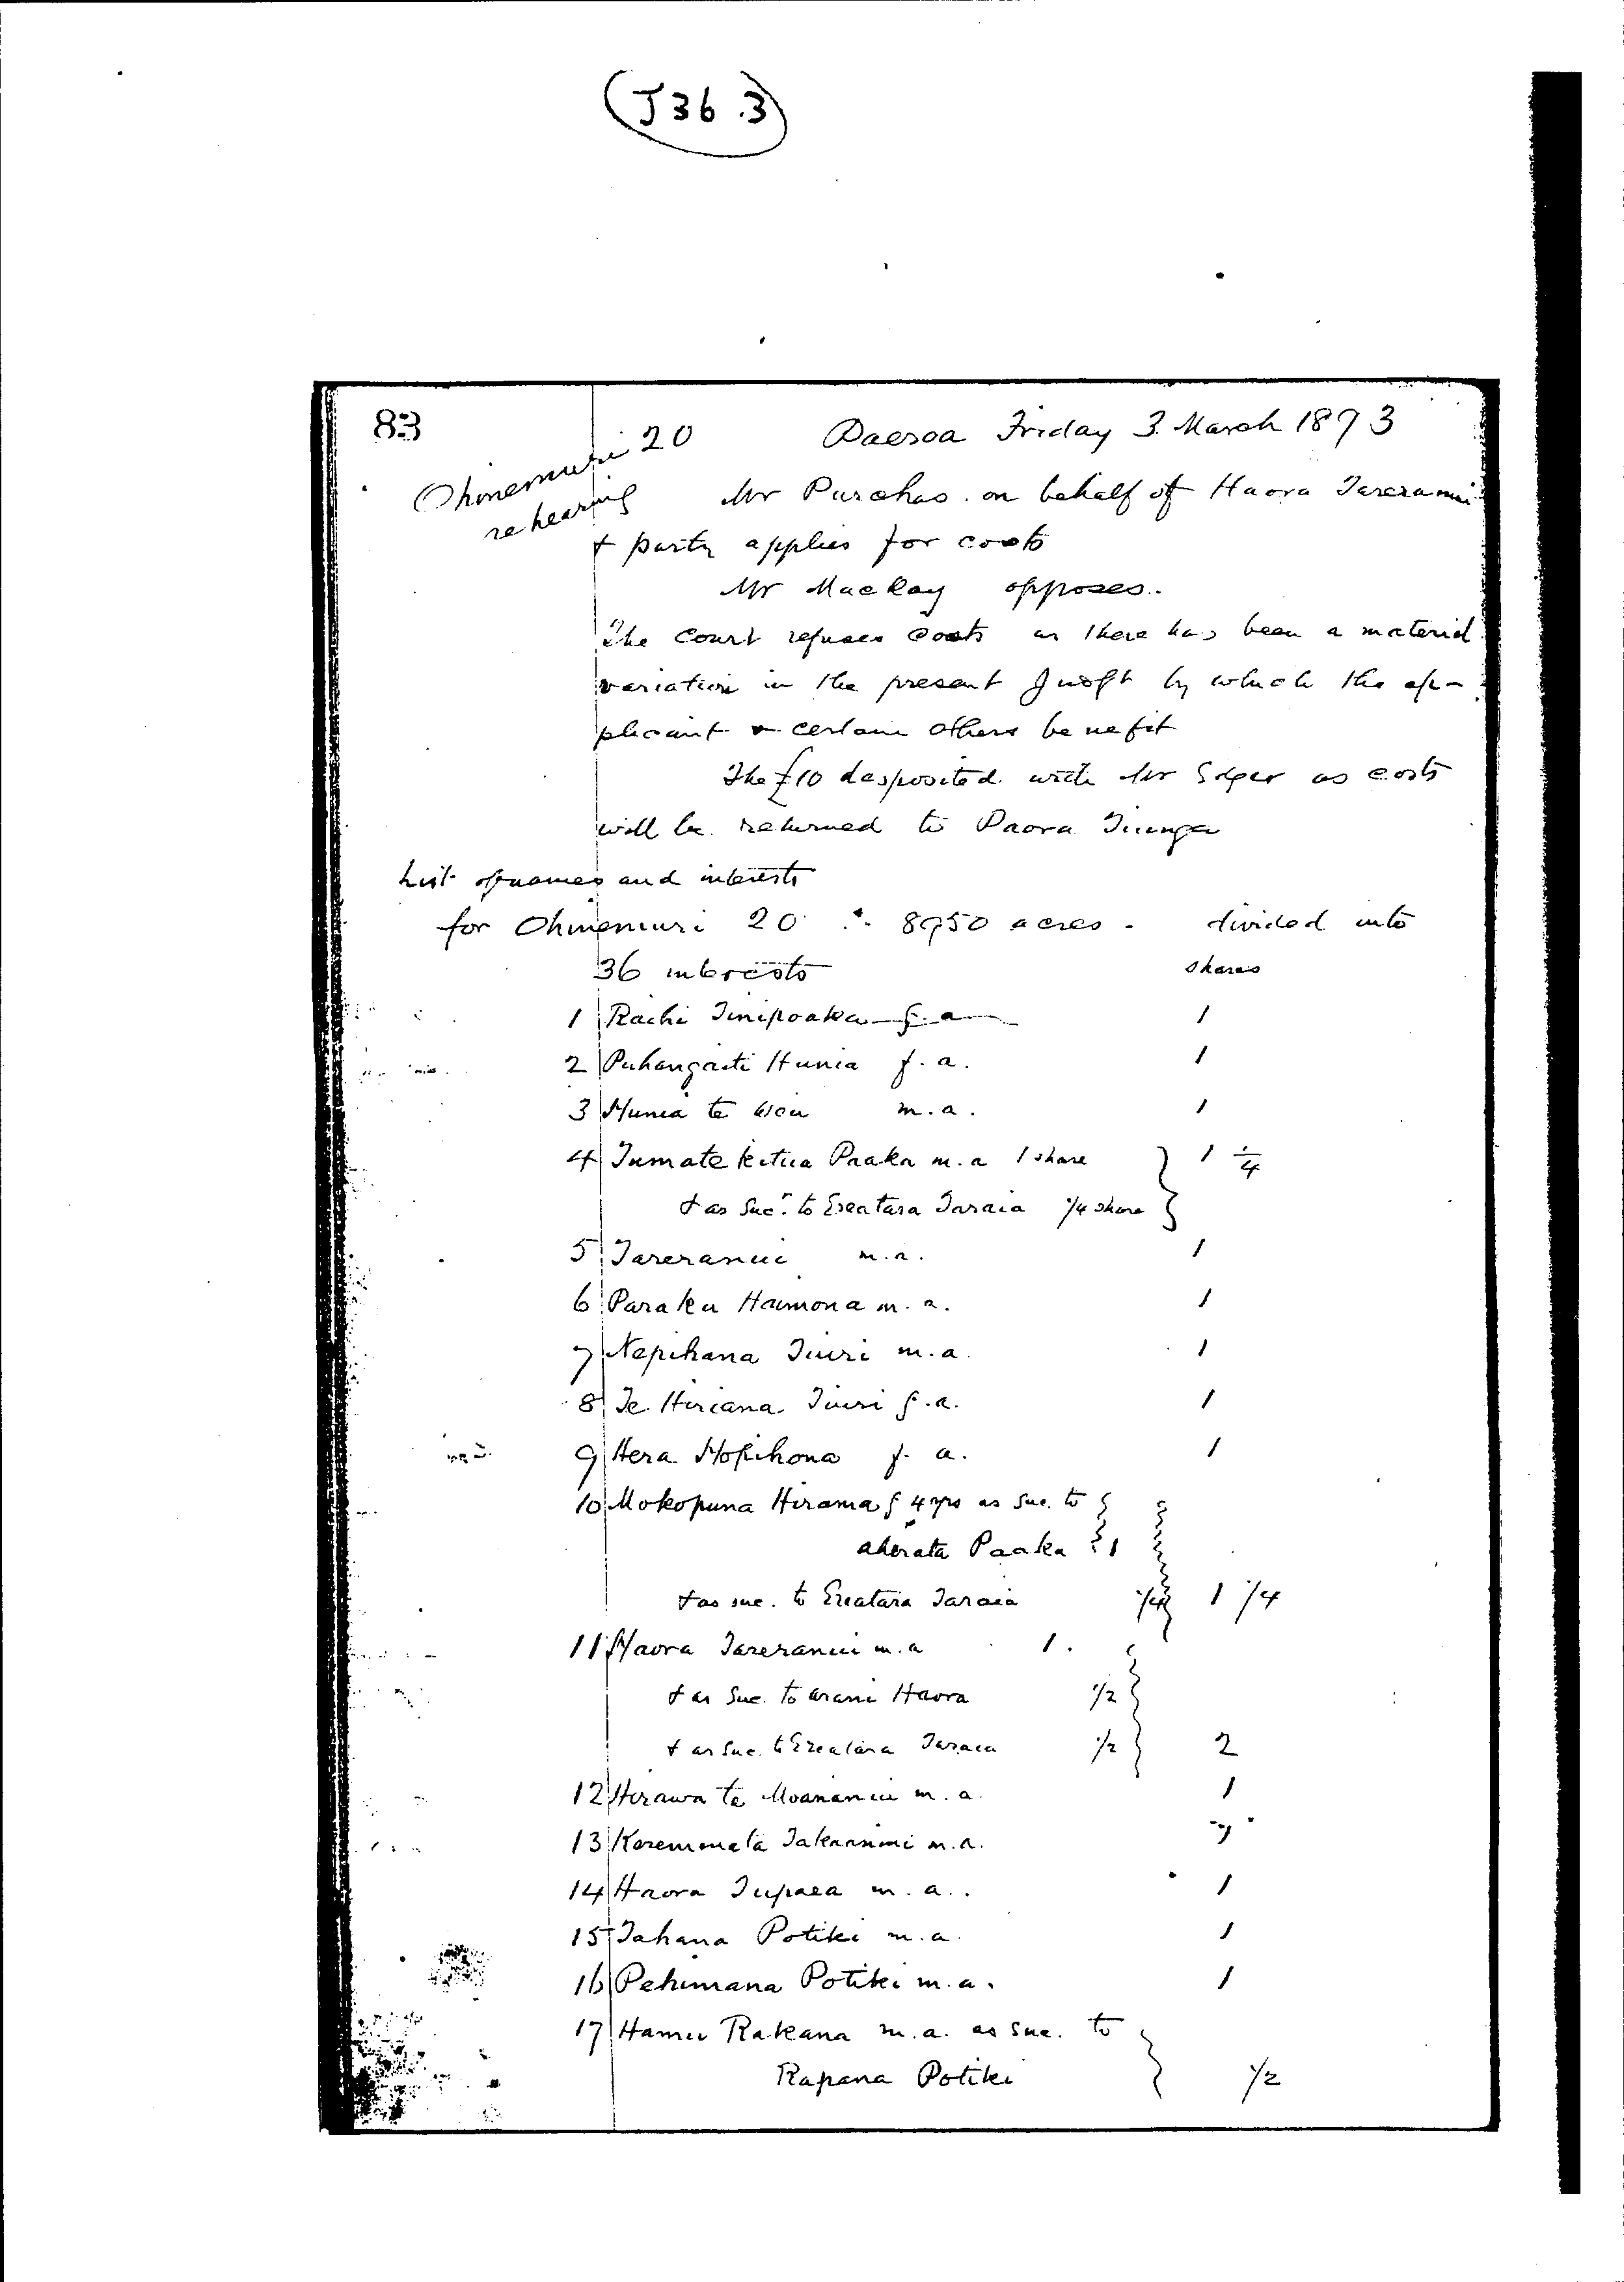 (J36.3)
83
Ohinemuri 20
rehearing
Paeroa Friday 3 March 1893
Mr Purchas on behalf of Haora Tareranui
+ party applies for costs
Mr Mackay opposes.
The Court refuses costs as there has been a material
variation in the present Judgt by which the ap-
plicant & certain others benefit
The £10 desposited with Mr as costs
will be returned to Paora Tiunga
List of names and interests
for Ohinemuri 20 : 8950 acres - divided into
36 interests shares
1 Rachi Tinipoaka f. a 1
2 Puhangaiti Hunia f. a. 1
3 Hunia te m. a. 1
4 Tumate kitua Paaka m. a 1 share } 1 1/4
+ as Suc. to Ereatara Taraia 1/4 share }
5 Tareranui m. a. 1
6 Paraku Haimona m. a. 1
7 Nepihana Tiuri m. a 1
8 Te Hiriana Tiuri f. a. 1
9 Hera Hopihona f. a. 1
10 Mokopuna Hirama f 4 yrs as suc. to }
aherata Paaka } 1
+ as suc. to Ereatara Taraia 1/4 } 1 1/4
11 Haora Tareranui m. a 1.
+ as Suc. to arani Haora 1/2 }
+ as Suc. to Ereatara Taraia 1/2 } 2
12 Hirawa te Moananui m. a. 1
13 m. a.
14 Haora Tupaea m. a.. 1
15 Tahana Potiki m. a. 1
16 Pehimana Potiki m. a. 1
17 Hamu Rakana m. a. as suc. to }
Rapana Potiki } 1/2